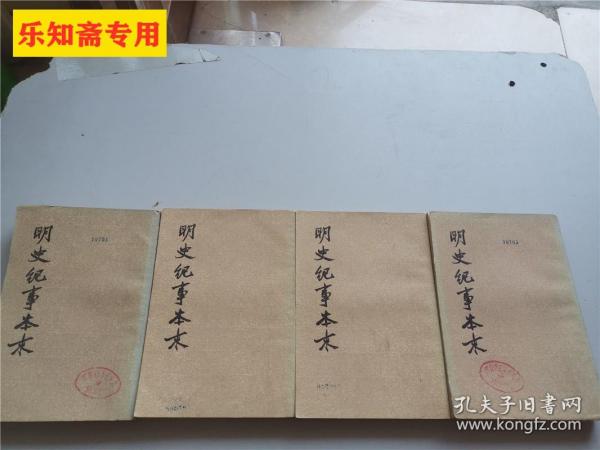 乐知斋专用
明史纪事本末
明史纪事本末
明史纪事本末
明史纪事本末
孔夫子旧书网
www.kongfz.com